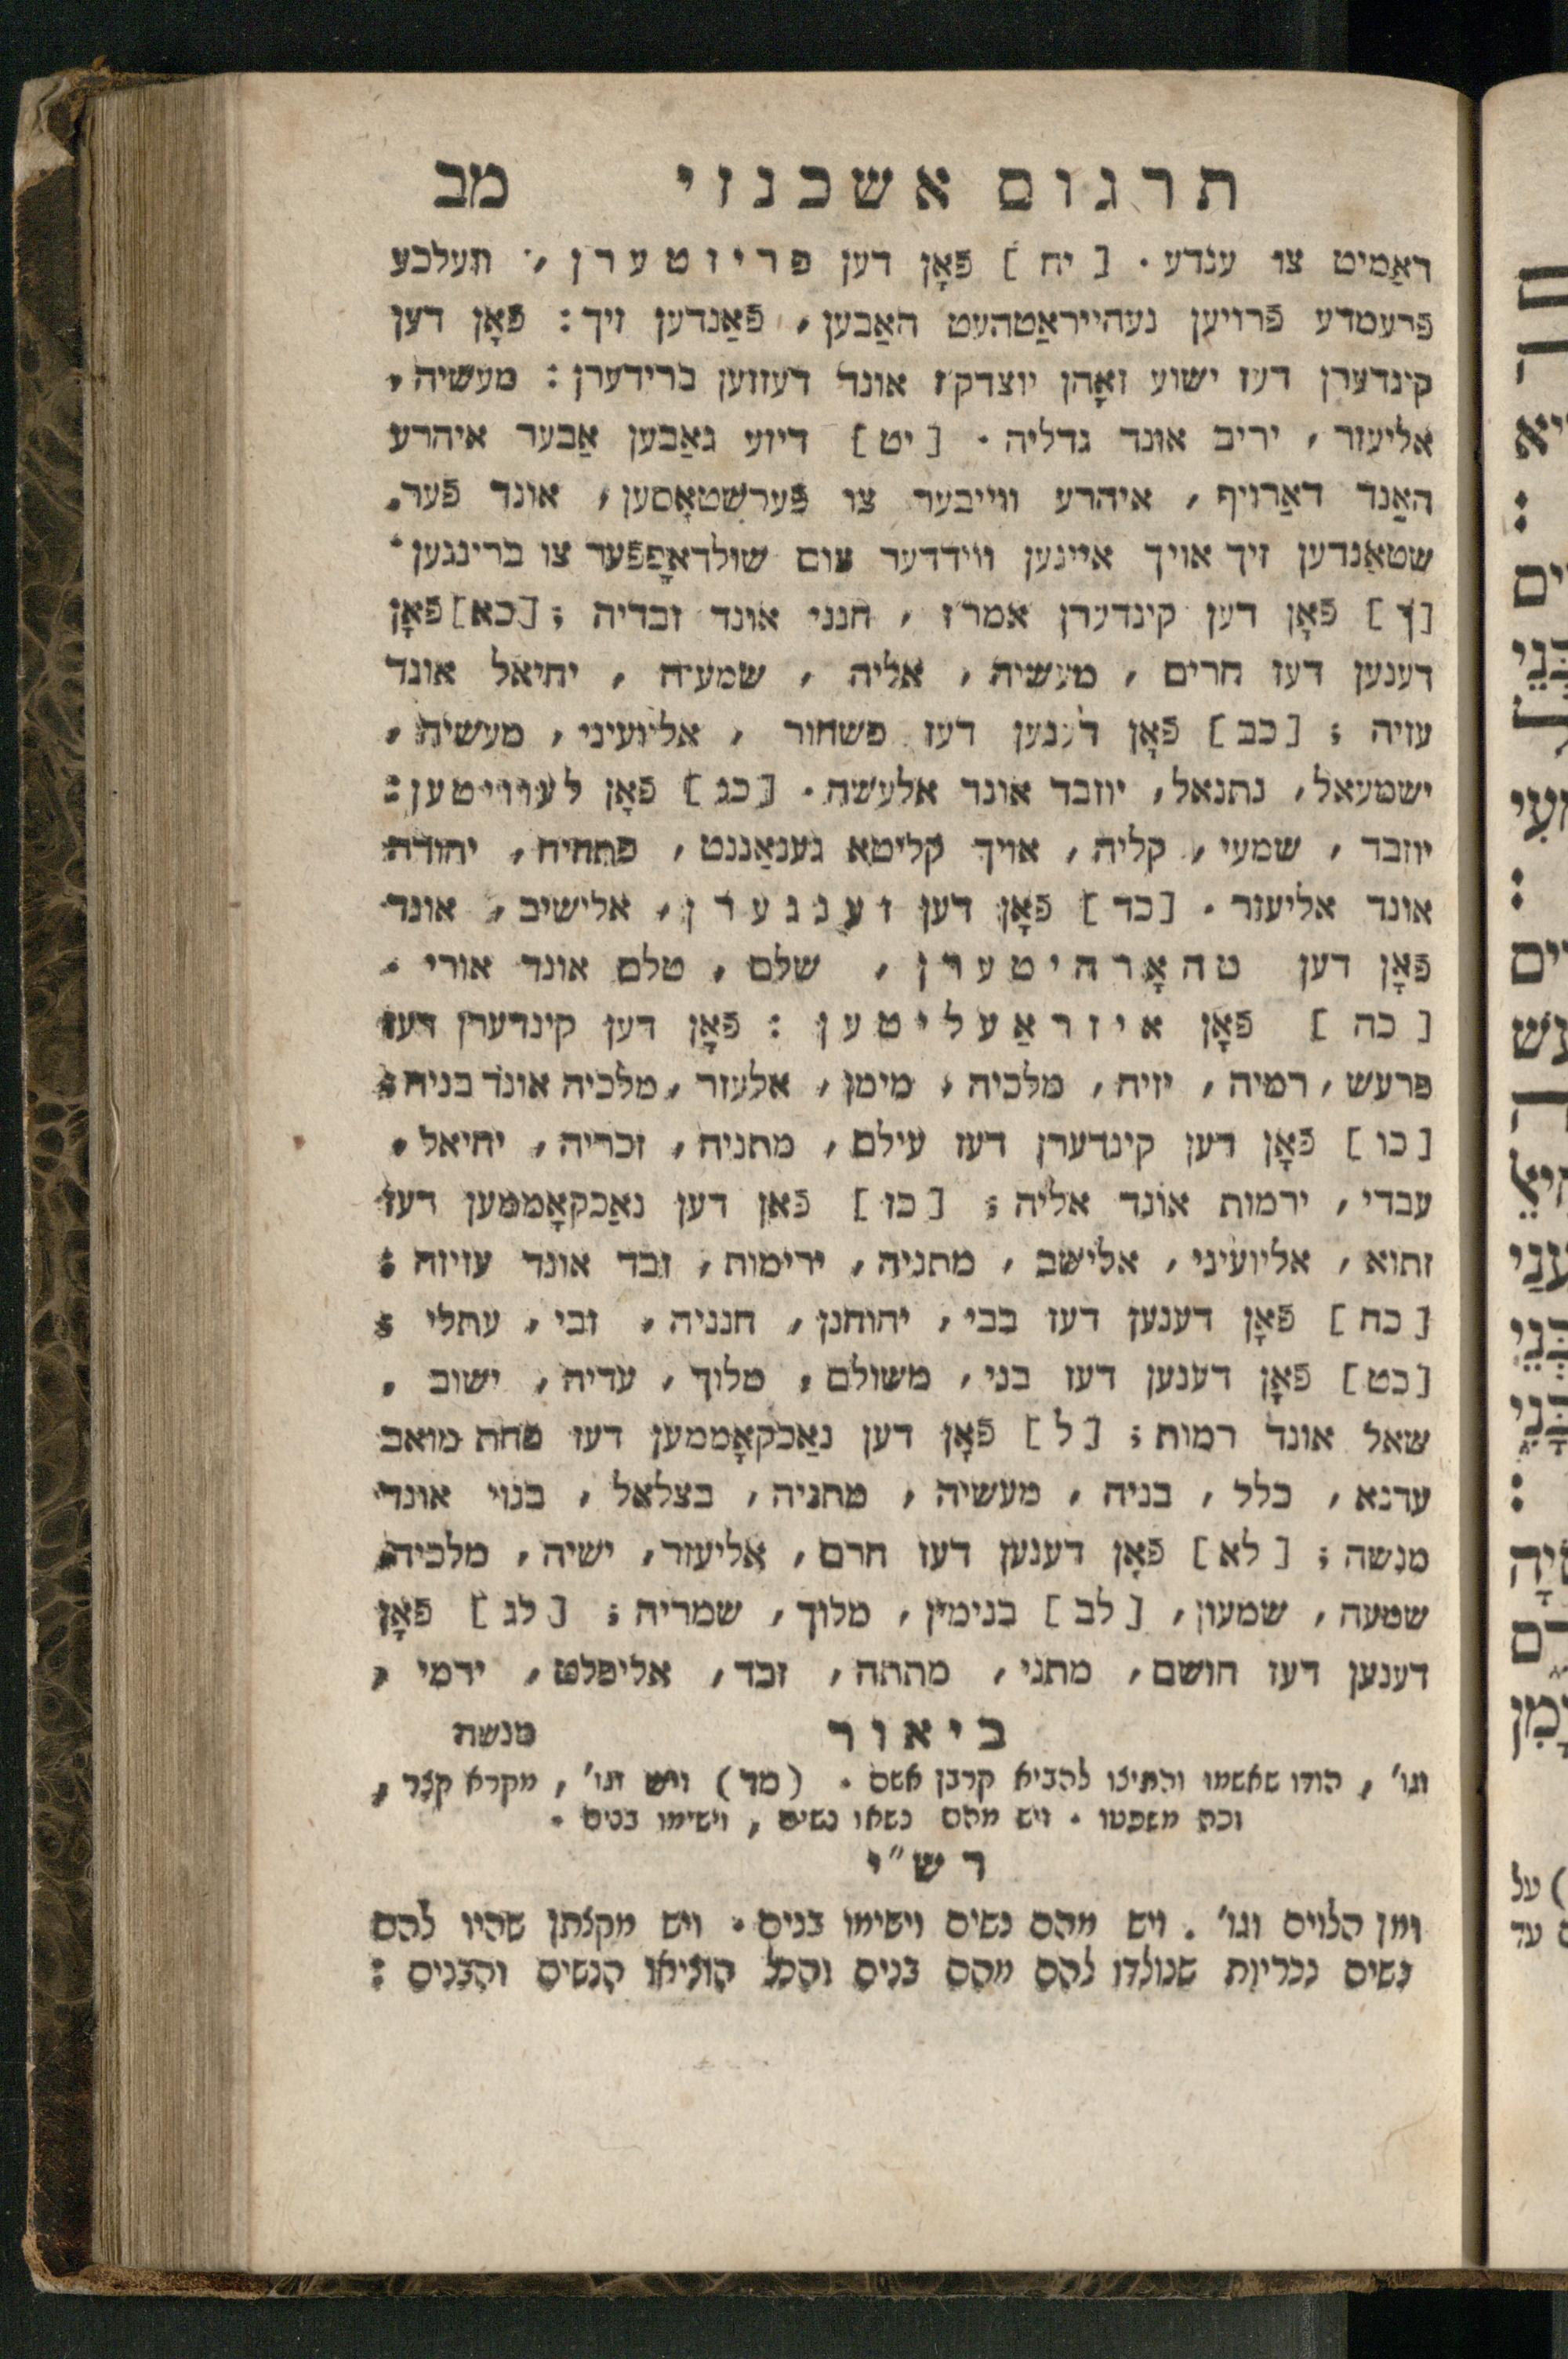 תרגום אשכנזי מב
דאַמיט צו ענדע. [יח] פאָן דען פריזטערן, וועלכע
פרעמדע פרויען געהייראַטהעט האַבען, פאַנדען זיך: פאָן דען
קינדערן דעז ישוע זאָהן יוצדק׳ז אונד דעזזען ברידערן: מעשיה,
אליעזר, יריב אונד גדליה. [יט] דיזע גאַבען אַבער איהרע
האַנד דאַרויף, איהרע ווייבער צו פערשטאָסען, אונד פער-
שטאַנדען זיך אויך איינען ווידדער צום שולדאָפפער צו ברינגען.
[ך] פאָן דען קינדערן אמר׳ז, חנני אונד זבדיה; [כא] פאָן
דענען דעז חרים, מעשיה, אליה, שמעיה, יחיאל אונד
עזיה; [כב] פאָן דענען דעז פשחור, אליועיני, מעשיה,
ישמעאל, נתנאל, יוזבד אונד אלעשה. [כג] פאָן לעוויטען:
יוזבד, שמעי, קליה, אויך קליטא גענאַננט, פתחיה, יהודה
אונד אליעזר. [כד] פאָן דען זענגערן, אלישיב, אונד
פאָן דען טהאָרהיטערן, שלם, טלם אונד אורי.
[כה] פאָן איזראַעליטען: פאָן דען קינדערן דעז
פרעש, רמיה, יזיה, מלכיה, מימן, אלעזר, מלכיה אונד בניה;
[כו] פאָן דען קינדערן דעז עילם, מתניה, זכריה, יחיאל,
עבדי, ירמות אונד אליה; [כז] פאן דען נאַכקאָממען דעז
זתוא, אליועיני, אלישב, מתניה, ירימות, זבד אונד עזיזה:
[כח] פאָן דענען דעז בבי, יהוחנן, חנניה, זבי, עתלי;
[כט] פאָן דענען דעז בני, משולם, מלוך, עדיה, ישוב,
שאל אונד רמות; [ל] פאָן דען נאַכקאָממען דעז פחת מואב
עדנא, כלל, בניה, מעשיה, מתניה, בצלאל, בנוי אונד
מנשה; [לא] פאָן דענען דעז חרם, אליעזר, ישיה, מלכיה,
שמעה, שמעון, [לב] בנימין, מלוך, שמריה; [לג] פאָן
דענען דעז חושם, מתני, מתתה, זבד, אליפלט, ירמי,
ביאור מנשה
וגו', הודו שאשמו והתיצו להביא קרבן אשם. (מד) ויש וגו', מקרא קצר,
וכה משפטו. ויש מהם נשאו נשים, וישימו בנים.
רש"י
ומן הלוים וגו'. ויש מהם נשים וישימו בנים. ויש מקצתן שהיו להם
נשים נכריות שנולדו להם מהם בנים והכל הוציאו הנשים והבנים: